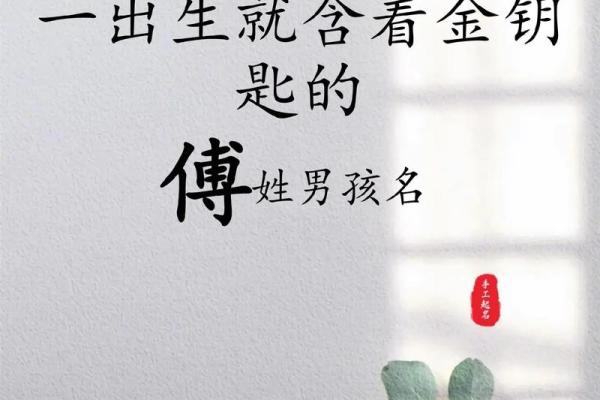 一出生就含着金钥
匙的
傅姓男孩名
手工起名